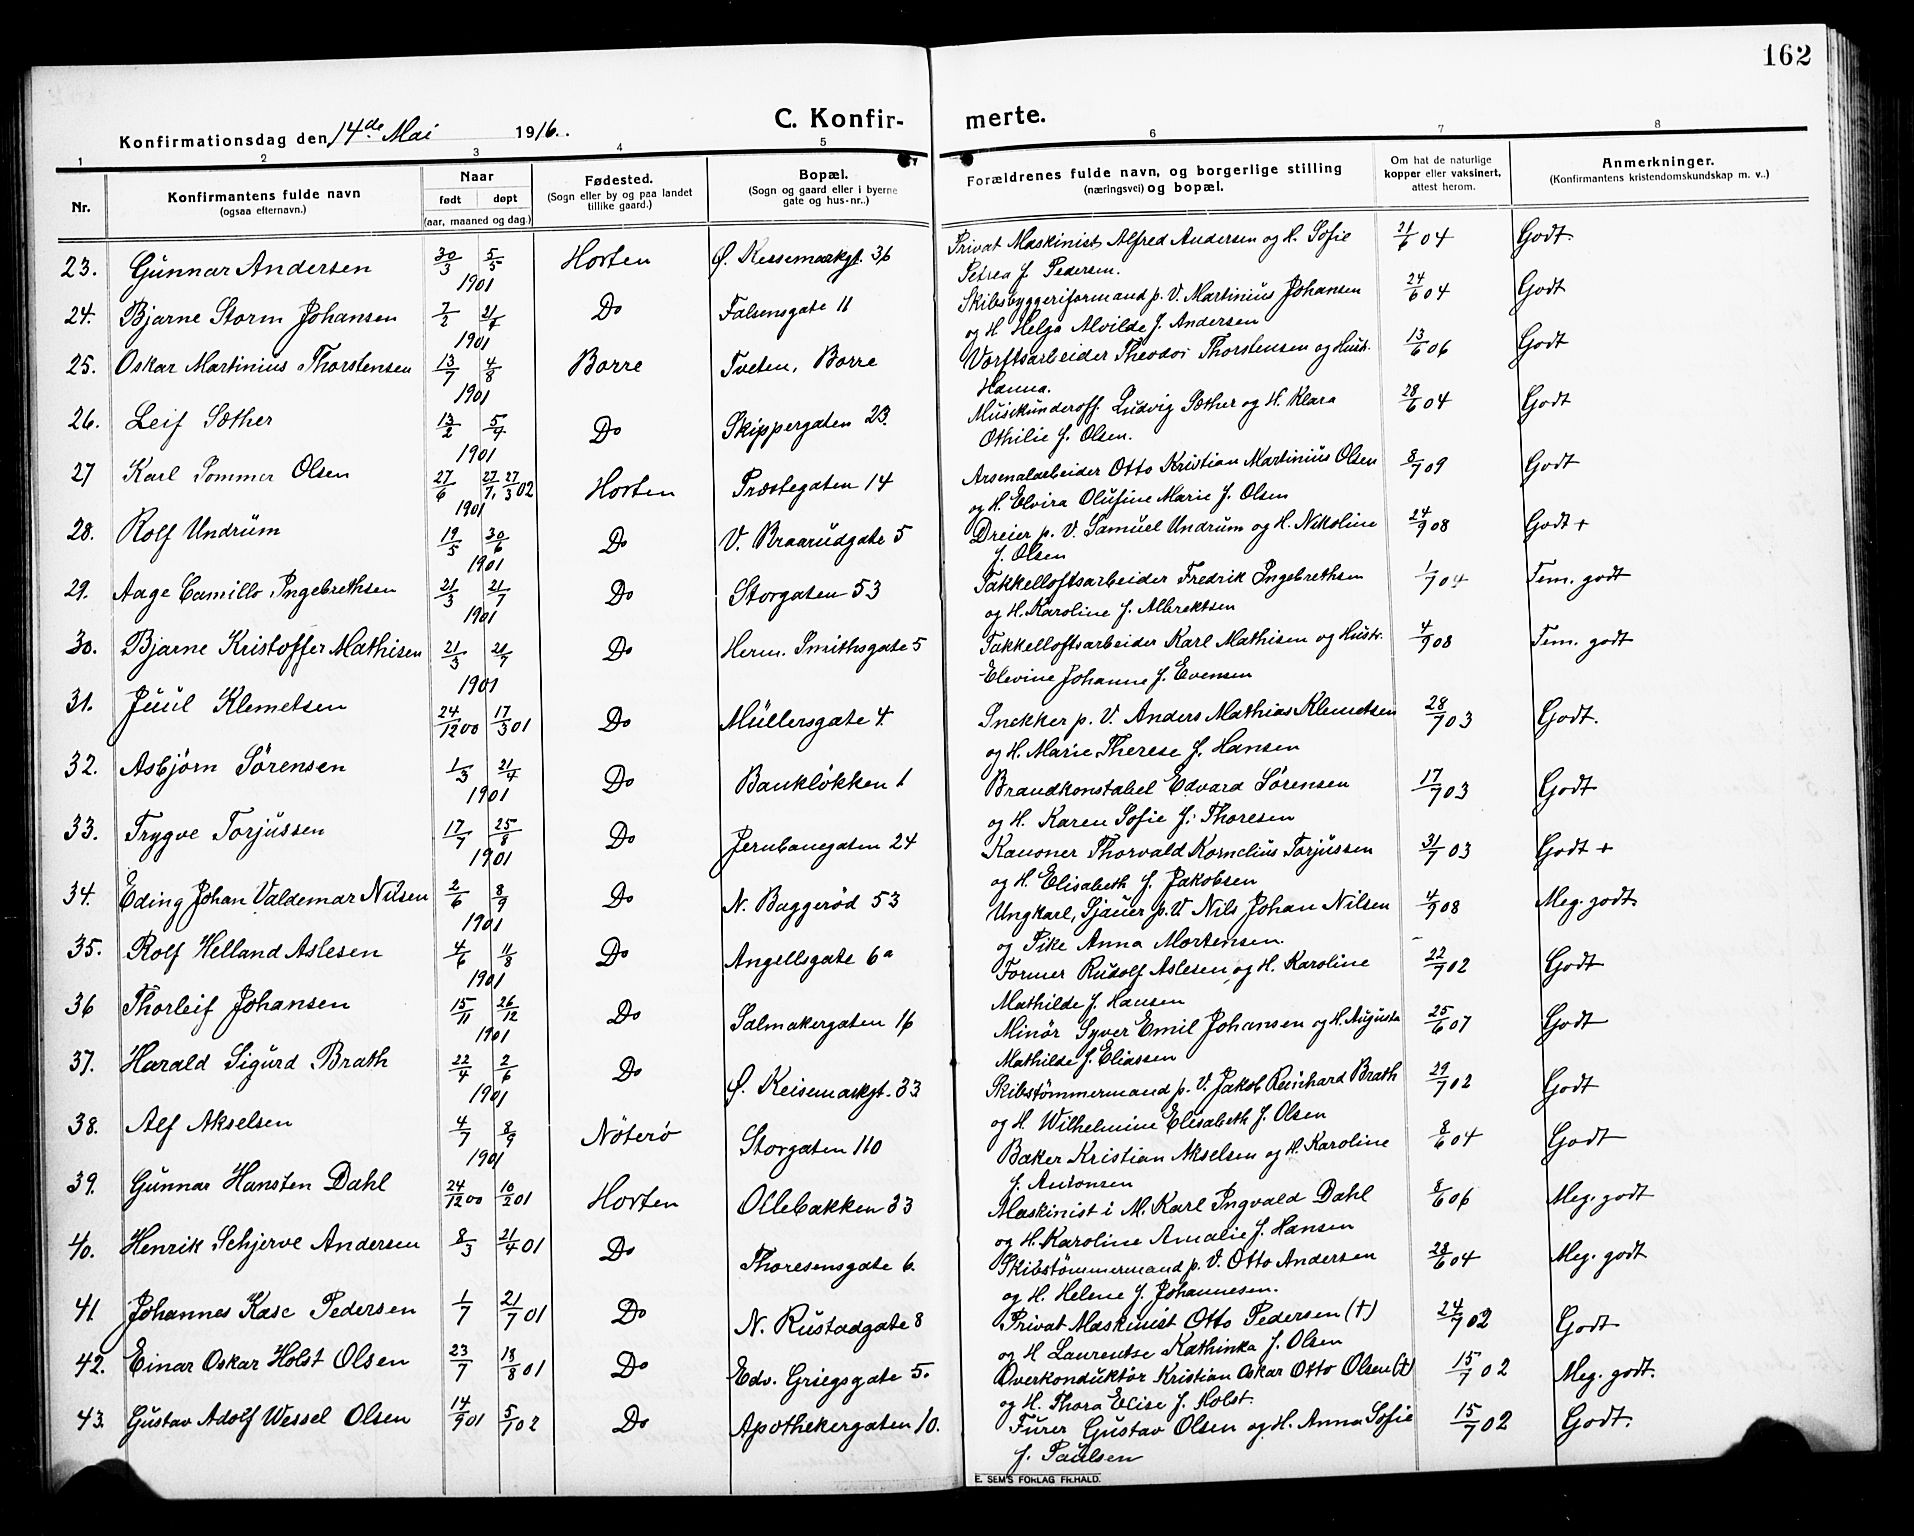 162
Konfirmationsdag den 14de Mai 1916.
C. Konfirmerte.
1 2 3 4 5 6 7 8
Nr.
Konfirmantens fulde navn
(ogsaa efternavn.)
Naar
født døpt
(aar, maaned og dag.)
Fødested.
(Sogn eller by og paa landet
tillike gaard.)
Bopæl.
(Sogn og gaard eller i byerne
gate og hus-nr..)
Forældrenes fulde navn, og borgerlige stilling
(næringsvei) og bopæl.
Om hat de naturlige
kopper eller vaksinert,
attest herom.
Anmerkninger.
(Konfirmantens kristendomskundskap m. v..)
23. Gunnar Andersen 30/3 5/5 1901 Horten Ø. Keisemarkgt. 36 Privat Maskinist Alfred Andersen og H. Sofie 21/6 04 Godt.
Petrea f. Pedersen.
24. Bjarne Storm Johansen 7/2 21/4 1901 Do Falsensgate 11 Skibsbyggeriformand p. V. Martinius Johansen 24/6 04 Godt
og H. Helga Alvilde f. Andersen
25. Oskar Martinius Thorstensen 13/7 4/8 1901 Borre Tveten, Borre Værftsarbeider Theodor Thorstensen og Hustr. 13/6 06 Godt
Hanna.
26. Leif Sæther 13/2 5/4 1901 Do Skippergaten 23. Musikunderoff. Ludvig Sæther og H. Klara 28/6 04 Godt
Othilie f. Olsen.
27 Karl Sommer Olsen 27/6 27/7. 27/3 02 1901 Horten Præstegaten 14 Arsenalarbeider Otto Kristian Martinius Olsen 8/7 09 Godt
og H. Elvira Olufine Marie f. Olsen
28. Rolf Undrum 19/5 30/6 1901 Do V. Braarudgate 5 Dreier p. V. Samuel Undrum og H. Nikoline 24/9 08 Godt +
f. Olsen
29. Aage Camillo Ingebrethsen 21/3 21/7 1901 Do Storgaten 53 Takkelloftsarbeider Fredrik Ingebrethsen 1/7 04 Tem. godt
og H. Karoline f. Albrektsen
30. Bjarne Kristoffer Mathisen 21/3 21/7 1901 Do Herm. Smithsgate 5 Takkelloftsarbeider Karl Mathisen og Hustr. 4/9 08 Tem. godt
Elevine Johanne f. Evensen
31. Juul Klemetsen 24/12 00 17/3 01 Do Müllersgate 4. Snekker p. V. Anders Mathias Klemetsen 28/7 03 Godt.
og H. Marie Therese f. Hansen
32. Asbjørn Sørensen 1/3 21/4 1901 Do Bankløkken 1 Brandkonstabel Edvard Sørensen 17/7 03 Godt
og H. Karen Sofie f. Thoresen
33. Trygve Torjussen 17/7 25/8 1901 Do Jernbanegaten 24 Kanoner Thorvald Kornelius Torjussen 31/7 03 Godt +
og H. Elisabeth f. Jakobsen
34. Eding Johan Valdemar Nilsen 2/6 8/9 1901 Do N. Baggerød 53 Ungkarl, Sjauer p. V Nils Johan Nilsen 4/9 08 Meg. godt.
og Pike Anna Mortensen.
35. Rolf Helland Aslesen 4/6 11/8 1901 Do Angellsgate 6a Former Rudolf Aslesen og H. Karoline 22/7 02 Godt
Mathilde f. Hansen
36 Thorleif Johansen 15/11 26/12 1901 Do Salmakergaten 16 Minør Syver Emil Johansen og H. Augusta 25/6 07 Godt
Mathilde f. Eliassen
37. Harald Sigurd Brath 22/4 2/6 1901 Do Ø. Keisemarkgt. 33 Skibstømmermand p. V. Jakob Reinhard Brath 29/7 02 Godt
og H. Wilhelmine Elisabeth f. Olsen
38. Alf Akselsen 4/7 8/9 1901 Nøterø Storgaten 110 Baker Kristian Akselsen og H. Karoline 8/6 04 Godt
f. Antonsen
39. Gunnar Hansten Dahl 24/12 00 10/2 01 Horten Ollebakken 33 Maskinist i M. Karl Ingvald Dahl 8/6 06 Meg. godt
og H. Karoline Amalie f. Hansen
40. Henrik Schjerve Andersen 8/3 21/4 01 Do Thoresensgate 6. Skibstømmermand p. V. Otto Andersen 28/6 04 Meg. godt
og H. Helene f. Johannesen.
41 Johannes Kase Pedersen 1/7 21/7 01 Do N. Rustadgate 8 Privat Maskinist Otto Pedersen (†) 24/7 02 Godt
og H Laurentse Kathinka f. Olsen
42. Einar Oskar Holst Olsen 23/7 18/8 01 Do Edv. Griegsgate 5. Overkonduktør Kristian Oskar Otto Olsen (†) 15/7 02 Meg. godt.
og H. Thora Elise f. Holst.
43. Gustav Adolf Wessel Olsen 14/9 01 5/7 02 Do Apothekergaten 10. Furer Gustav Olsen og H. Anna Sofie 15/7 02 Godt.
f. Paulsen
E. SEM'S FORLAG FR.HALD.